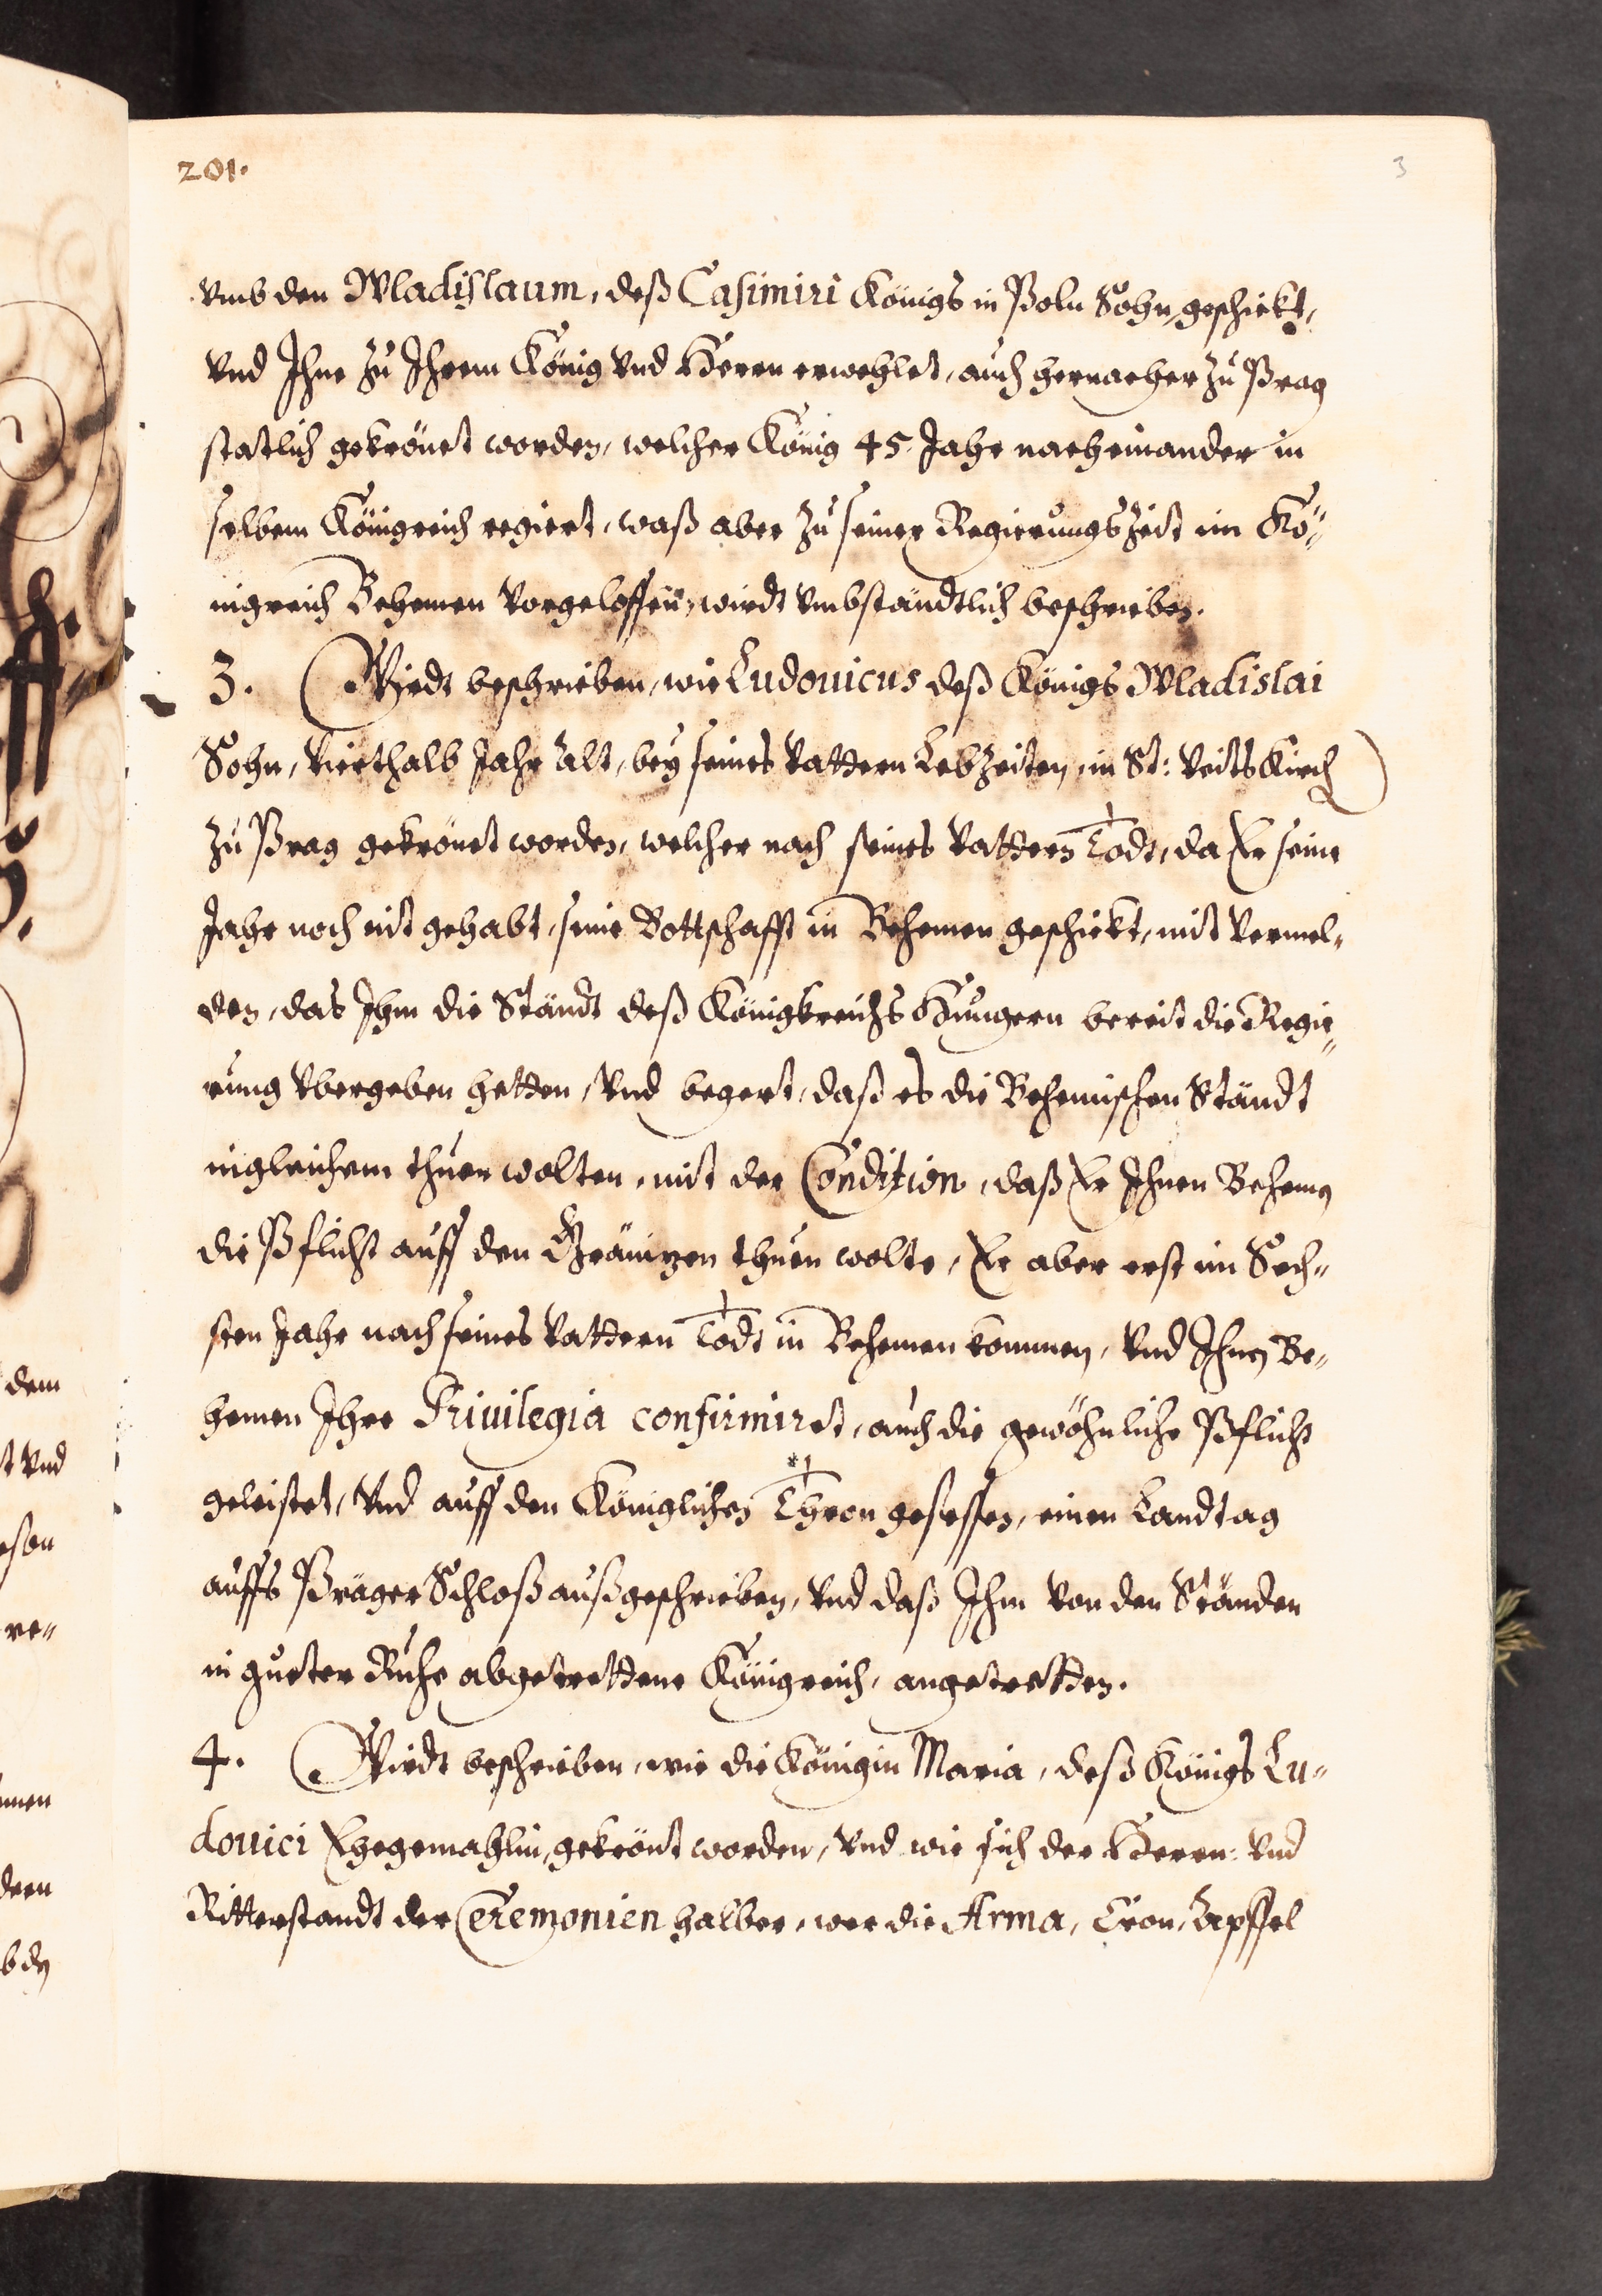 201.
3
vmb den Wladislaum, deß Casimiri Königs in Poln Sohn, geschickt,
vnd Ihne zu Ihrem König vnd Herrn erwehlet, auch hernacher zu Prag
statlich gekrönet worden, welcher König 45. Jahr nacheinander in
selbem Königreich regiert, waß aber zu seiner Regierungszeit im Kö-
nigreich Behemen vorgeloffen, wirdt vmbständtlich beschrieben.
3. Wirdt beschrieben, wie Ludouicus deß Königs Wladislai
Sohn, Vierthalb Jahr alt, bey seines Vattern Lebzeiten, in St: Veits Kirch
zu Prag gekrönet worden, welcher nach seines Vattern Todt, da Er seine
Jahr noch nit gehabt, seine Bottschafft in Behemen geschickt, mit vermel-
den, das Ihm die Ständt deß Königkreichs Hungern bereit die Regie-
rung vbergeben hetten, vnd begert, daß es die Behemischen Ständt
ingleichem thuen wolten, mit der Condition, daß Er Ihnen Behemen
die Pflicht auff den Gränizen thuen wolte, Er aber erst im Sech-
sten Jahr nach seines Vattern Todt in Behemen kommen, vnd Ihnen Be-
hemen Ihre Priuilegia confirmiret, auch die gewöhnliche Pflicht
geleistet, vnd auff den Königlichen Thron gesessen, einen Landtag
auffs Präger Schloß außgeschrieben, vnd daß Ihm von den Ständen
in gueter Ruhe abgetrettene Königreich, angetretten.
4. Wirdt beschrieben, wie die Königin Maria, deß Königs Lu-
douici Ehegemahlin, gekrönt worden, vnd wie sich der Herrn- vnd
Ritterstandt der Ceremonien halber, wer die Arma, Cron, Apffel
dem
vnd